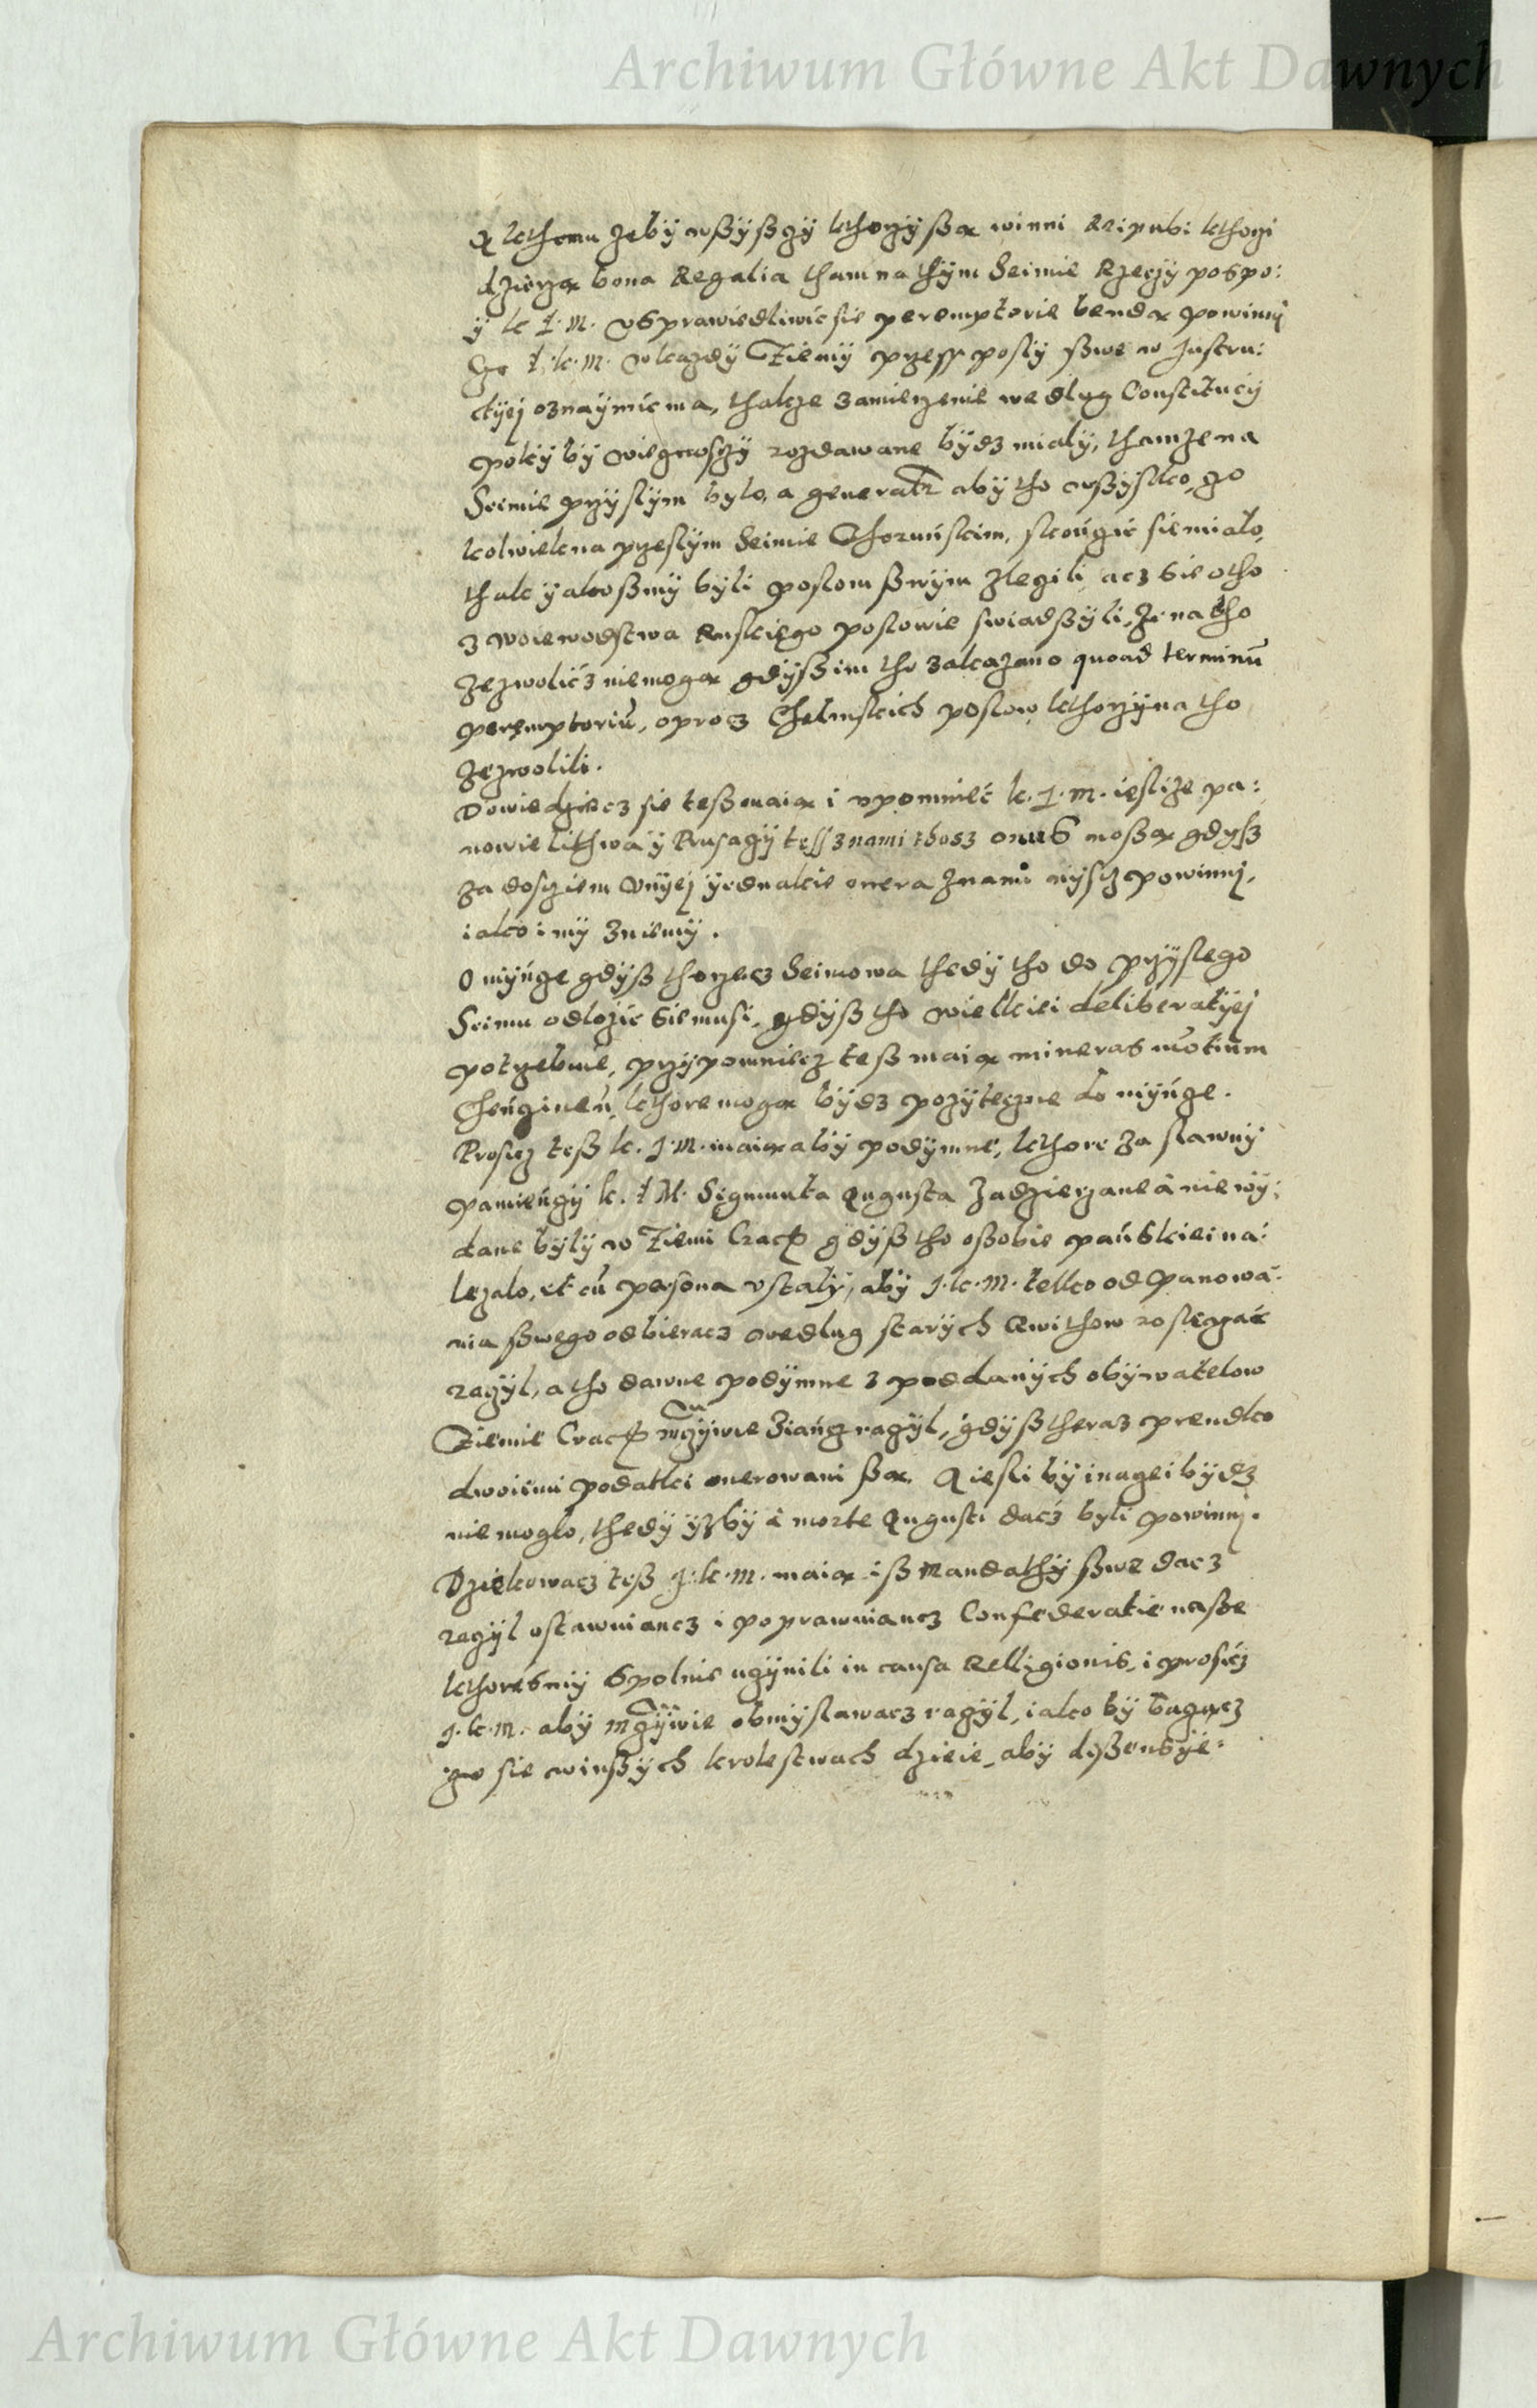 Archiwum Główne Akt Dawnych
A kthemu żeby wßyßczy kthorzy ßą winni Reipub: kthorzi
dzierzą bona Regalia tham na thym Seimie Rzeczy pospo:
y k. J. M. usprawiedliwić sie peremptorie bendą powinni
J. k. M. w każdy Ziemy przess posły ßwe w Instru:
ctyej oznaymić ma, thakże zamierzenie według Constitucij
póki by wiecznosczy rozdawane bydz miały, thamże na
Seimie przyslym było, a generatr aby tho wßystko, czo
kolwiek na przeslym Seimie Thoruńskim, skończić sie miało,
thak yakoßmy byli posłom ßwym zlecili, acz sie o tho
z woiewodstwa Ruskiego posłowie swiadßyli, że na tho
zezwolicz nie mogą gdyß im tho zakazano quoad terminū
peremptoriū, oprocz Chelmskich posłow kthorzy na tho
zezwolili.
Dowiedziecz sie teß maią i upomnieć k. J. M. iesliże pa:
nowie Lithwa y Prusaczy tess z nami thosz onus noßą gdysz
za dosziem Unyej yednakie onera z nami nyscz powinni,
iako i my z niemy.
O myńcze gdyß tho rzecz Seimowa thedy tho do przyslego
Seimu odlożić sie musi, gdyß tho wielkiei deliberatyej
potrzebuie, przypomniecz teß maią mineras montium
Chęńcineń, kthore mogą bydz pożyteczne do myńcze.
Prosicz teß k. J. M. maią aby podymne, kthore za sławny
pamieńczy k. J. M. Sigmunta Augusta zadzierzane a nie wy:
dane były w Ziemi Crac. gdyß tho oßobie pańskiei na:
leżało, et cū persona ustały, aby J. k. M. telko od panowa:
nia ßwego odbieracz według starych Qwithow roskazać
raczył, a tho dawne podymne z poddanych obywatelow
Ziemie Crac. msczywie ziańcz raczył, gdyß theraz prendko
dwoiemi podatki onerowani ßą. A iesli by inaczei bydz
nie mogło, thedy yzby a morte Augusti dacz byli powinni.
Dziekowacz teß J. k. M. maią iß Mandathy ßwe dacz
raczył ustawuiancz i poprawuiancz Confederatie naße
kthoresmy spolnie uczynili in causa Relligionis, i prosicz
J. k. M. aby msczywie obmyslawacz raczył, iako by baczącz
czo sie w inßych krolestwach dzieie, aby dißensye:
Archiwum Główne Akt Dawnych